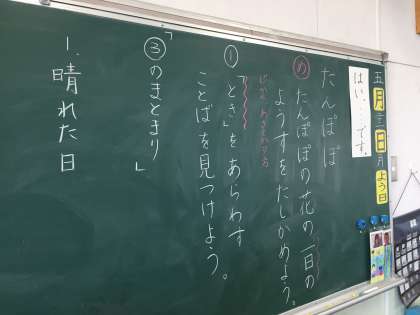 五月三日月よう日
はい、…です。
たんぽぽ
め たんぽぽの花の、一日の
ようすをたしかめよう。
① 「とき」をあらわす
ことばを見つけよう。
「③のまとまり」
1. 晴れた日